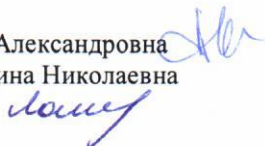 Александровна
ина Николаевна